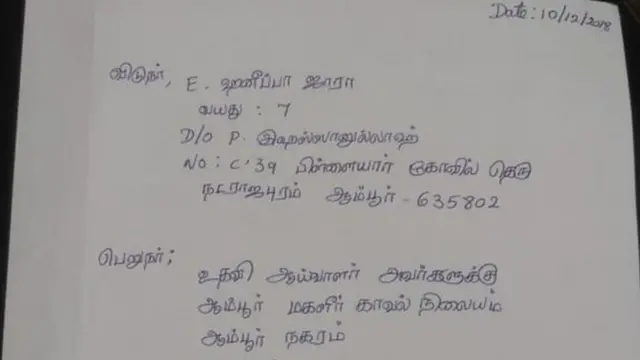 Date: 10/12/2018
விடுநர், E. ஹனீப்பா ஜாரா
வயது : 7
D/O P. இஹஸ்ஸானுல்லாஹ்
NO: C.39 பிள்ளையார் கோவில் தெரு
நடராஜபுரம் ஆம்பூர் - 635802
பெறுநர்;
உதவி ஆய்வாளர் அவர்களுக்கு
ஆம்பூர் மகளிர் காவல் நிலையம்
ஆம்பூர் நகரம்